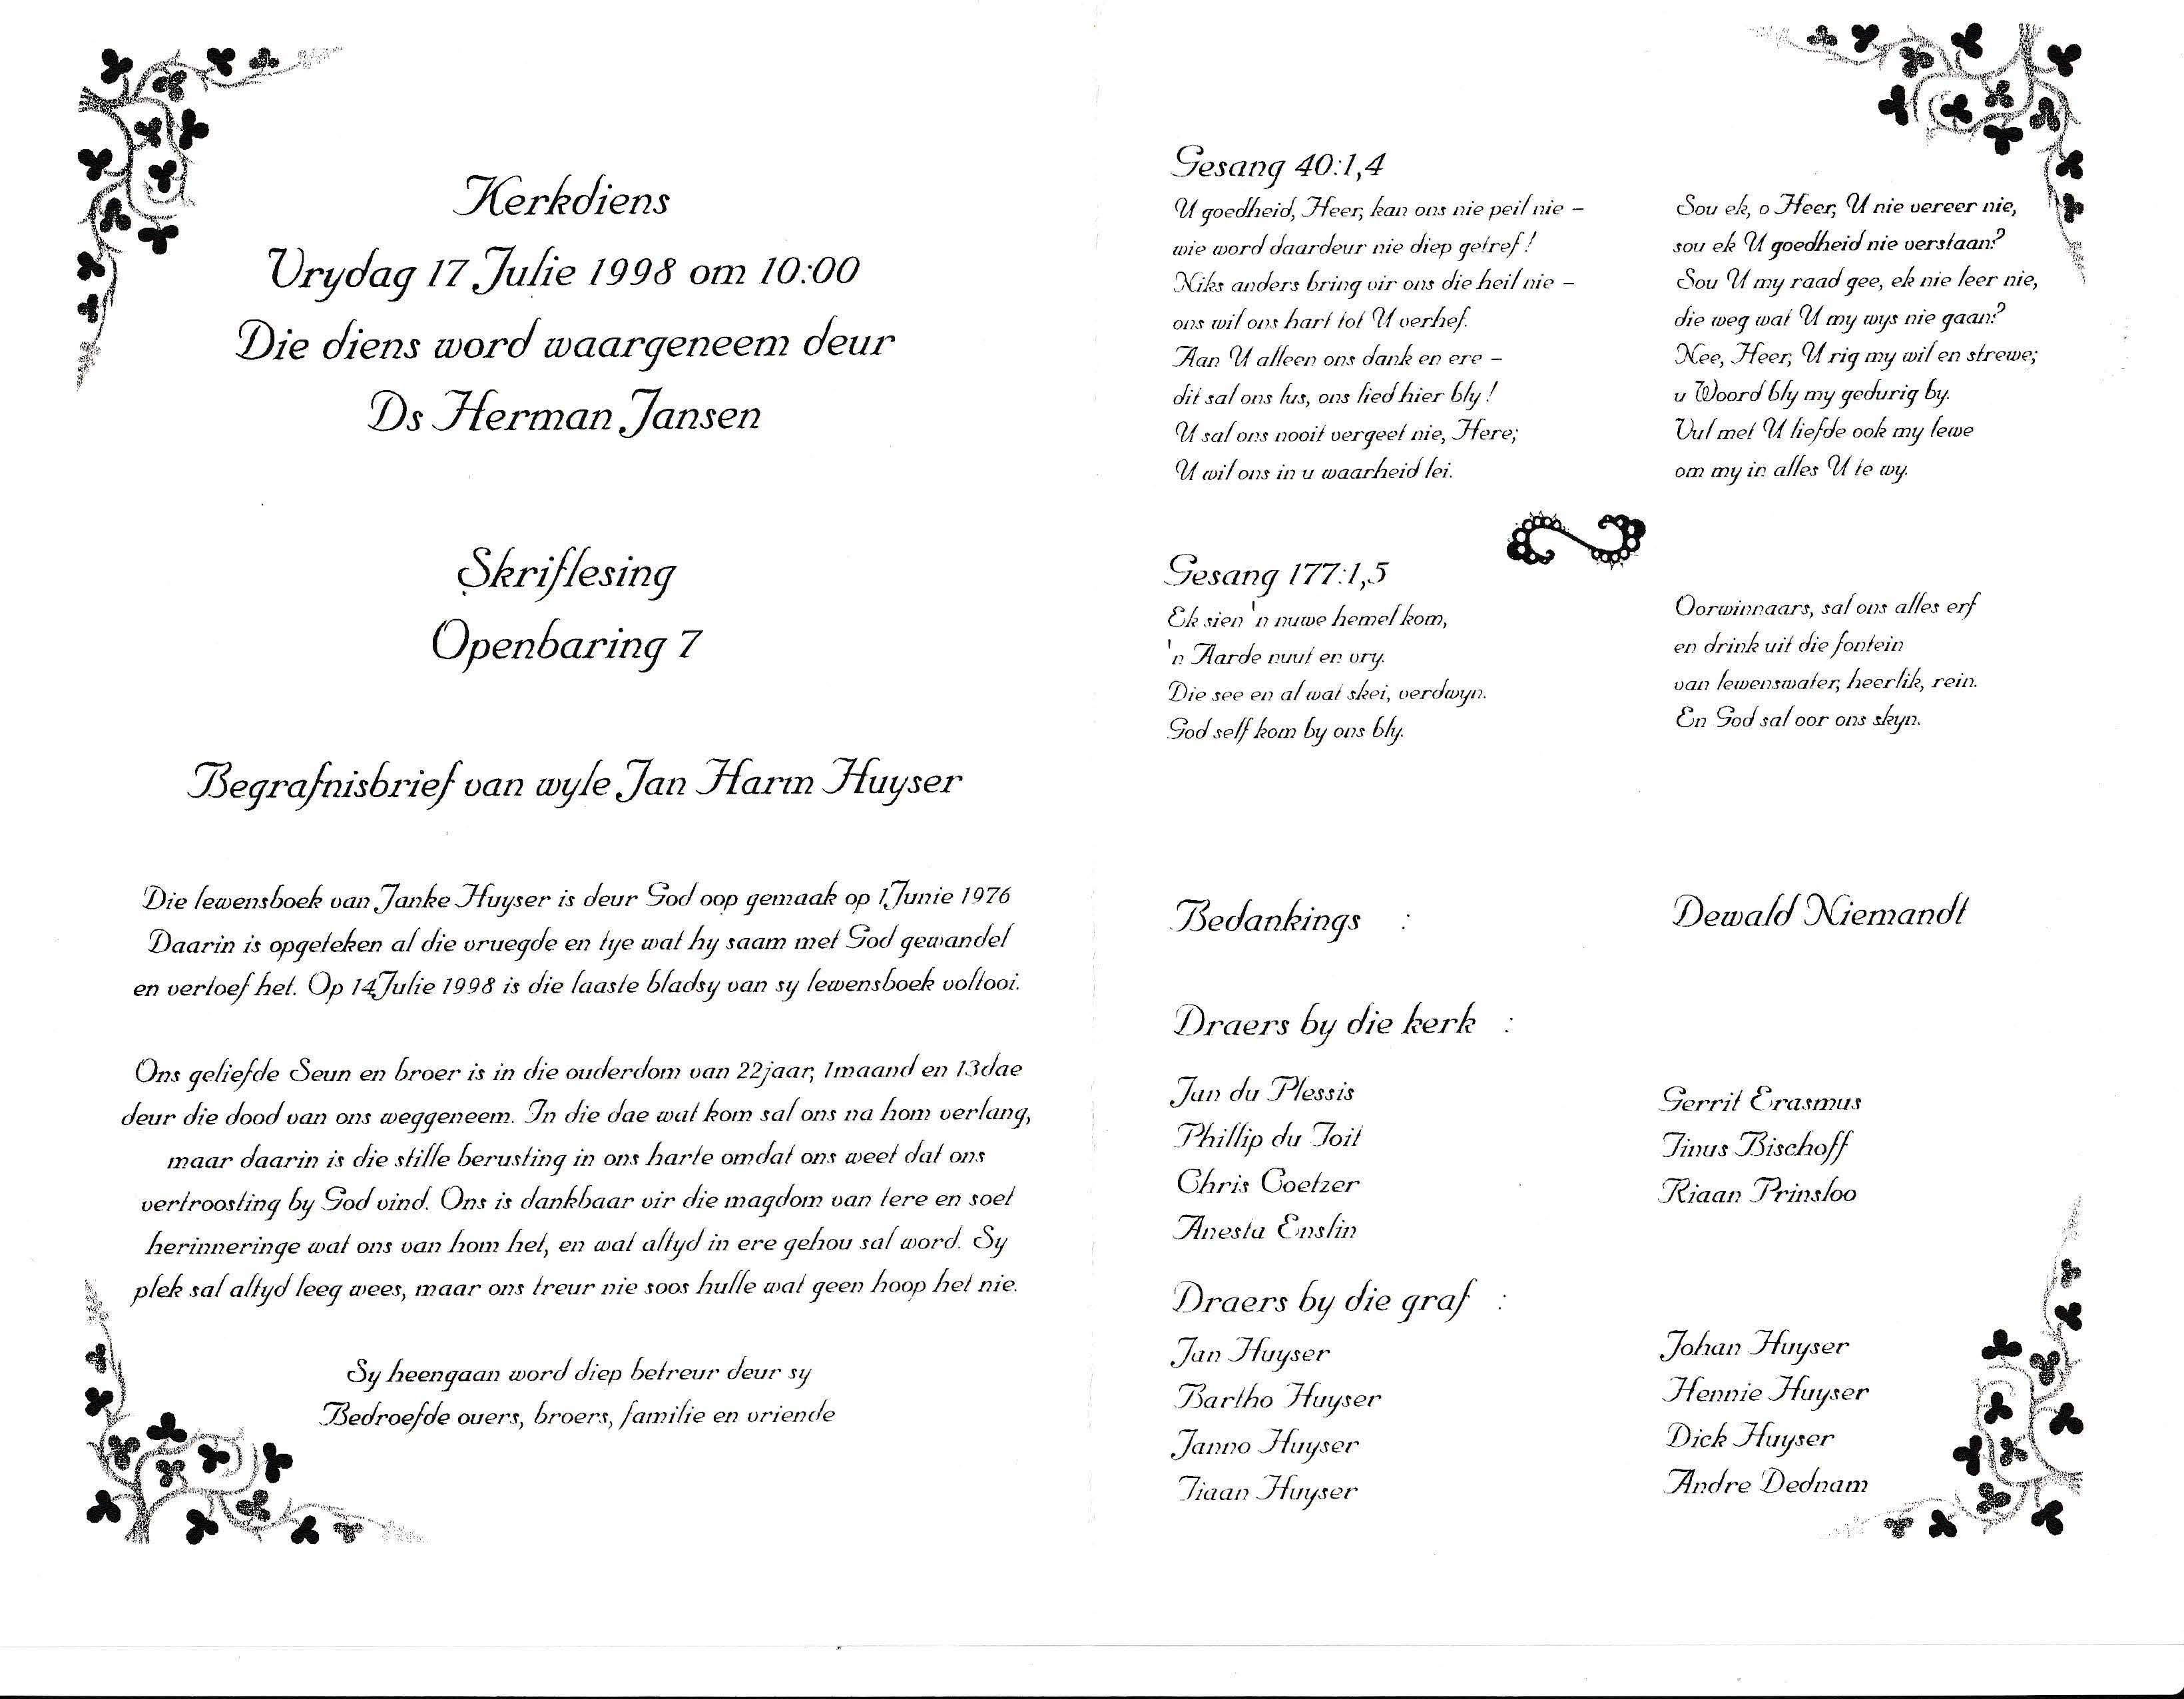 Kerkdiens
Vrydag 17 Julie 1998 om 10:00
Die diens word waargeneem deur
Ds Herman Jansen
Skriflesing
Openbaring 7
Begrafnisbrief van wyle Jan Harm Huyser
Die lewensboek van Janke Huyser is deur God oop gemaak op 1 Junie 1976
Daarin is opgeteken al die vruegde en tye wat hy saam met God gewandel
en vertoef het. Op 14 Julie 1998 is die laaste bladsy van sy lewensboek voltooi.
Ons geliefde Seun en broer is in die ouderdom van 22jaar, 1maand en 13dae
deur die dood van ons weggeneem. In die dae wat kom sal ons na hom verlang,
maar daarin is die stille berusting in ons harte omdat ons weet dat ons
vertroosting by God vind. Ons is dankbaar vir die magdom van tere en soet
herinneringe wat ons van hom het, en wat altyd in ere gehou sal word. Sy
plek sal altyd leeg wees, maar ons treur nie soos hulle wat geen hoop het nie.
Sy heengaan word diep betreur deur sy
Bedroefde ouers, broers, familie en vriende
Gesang 40:1,4
U goedheid, Heer, kan ons nie peil nie –
wie word daardeur nie diep getref!
Niks anders bring vir ons die heil nie –
ons wil ons hart tot U verhef.
Aan U alleen ons dank en ere –
dit sal ons lus, ons lied hier bly!
U sal ons nooit vergeet nie, Here;
U wil ons in u waarheid lei.
Sou ek, o Heer, U nie vereer nie,
sou ek U goedheid nie verstaan?
Sou U my raad gee, ek nie leer nie,
die weg wat U my wys nie gaan?
Nee, Heer, U rig my wil en strewe;
u Woord bly my gedurig by.
Vul met U liefde ook my lewe
om my in alles U te wy.
Gesang 177:1,5
Ek sien 'n nuwe hemel kom,
'n Aarde nuut en vry.
Die see en al wat skei, verdwyn.
God self kom by ons bly.
Oorwinnaars, sal ons alles erf
en drink uit die fontein
van lewenswater, heerlik, rein.
En God sal oor ons skyn.
Bedankings : Dewald Niemandt
Draers by die kerk :
Jan du Plessis
Phillip du Toit
Chris Coetzer
Anesta Enslin
Gerrit Erasmus
Tinus Bischoff
Riaan Prinsloo
Draers by die graf :
Jan Huyser
Bartho Huyser
Janno Huyser
Tiaan Huyser
Johan Huyser
Hennie Huyser
Dick Huyser
Andre Dednam